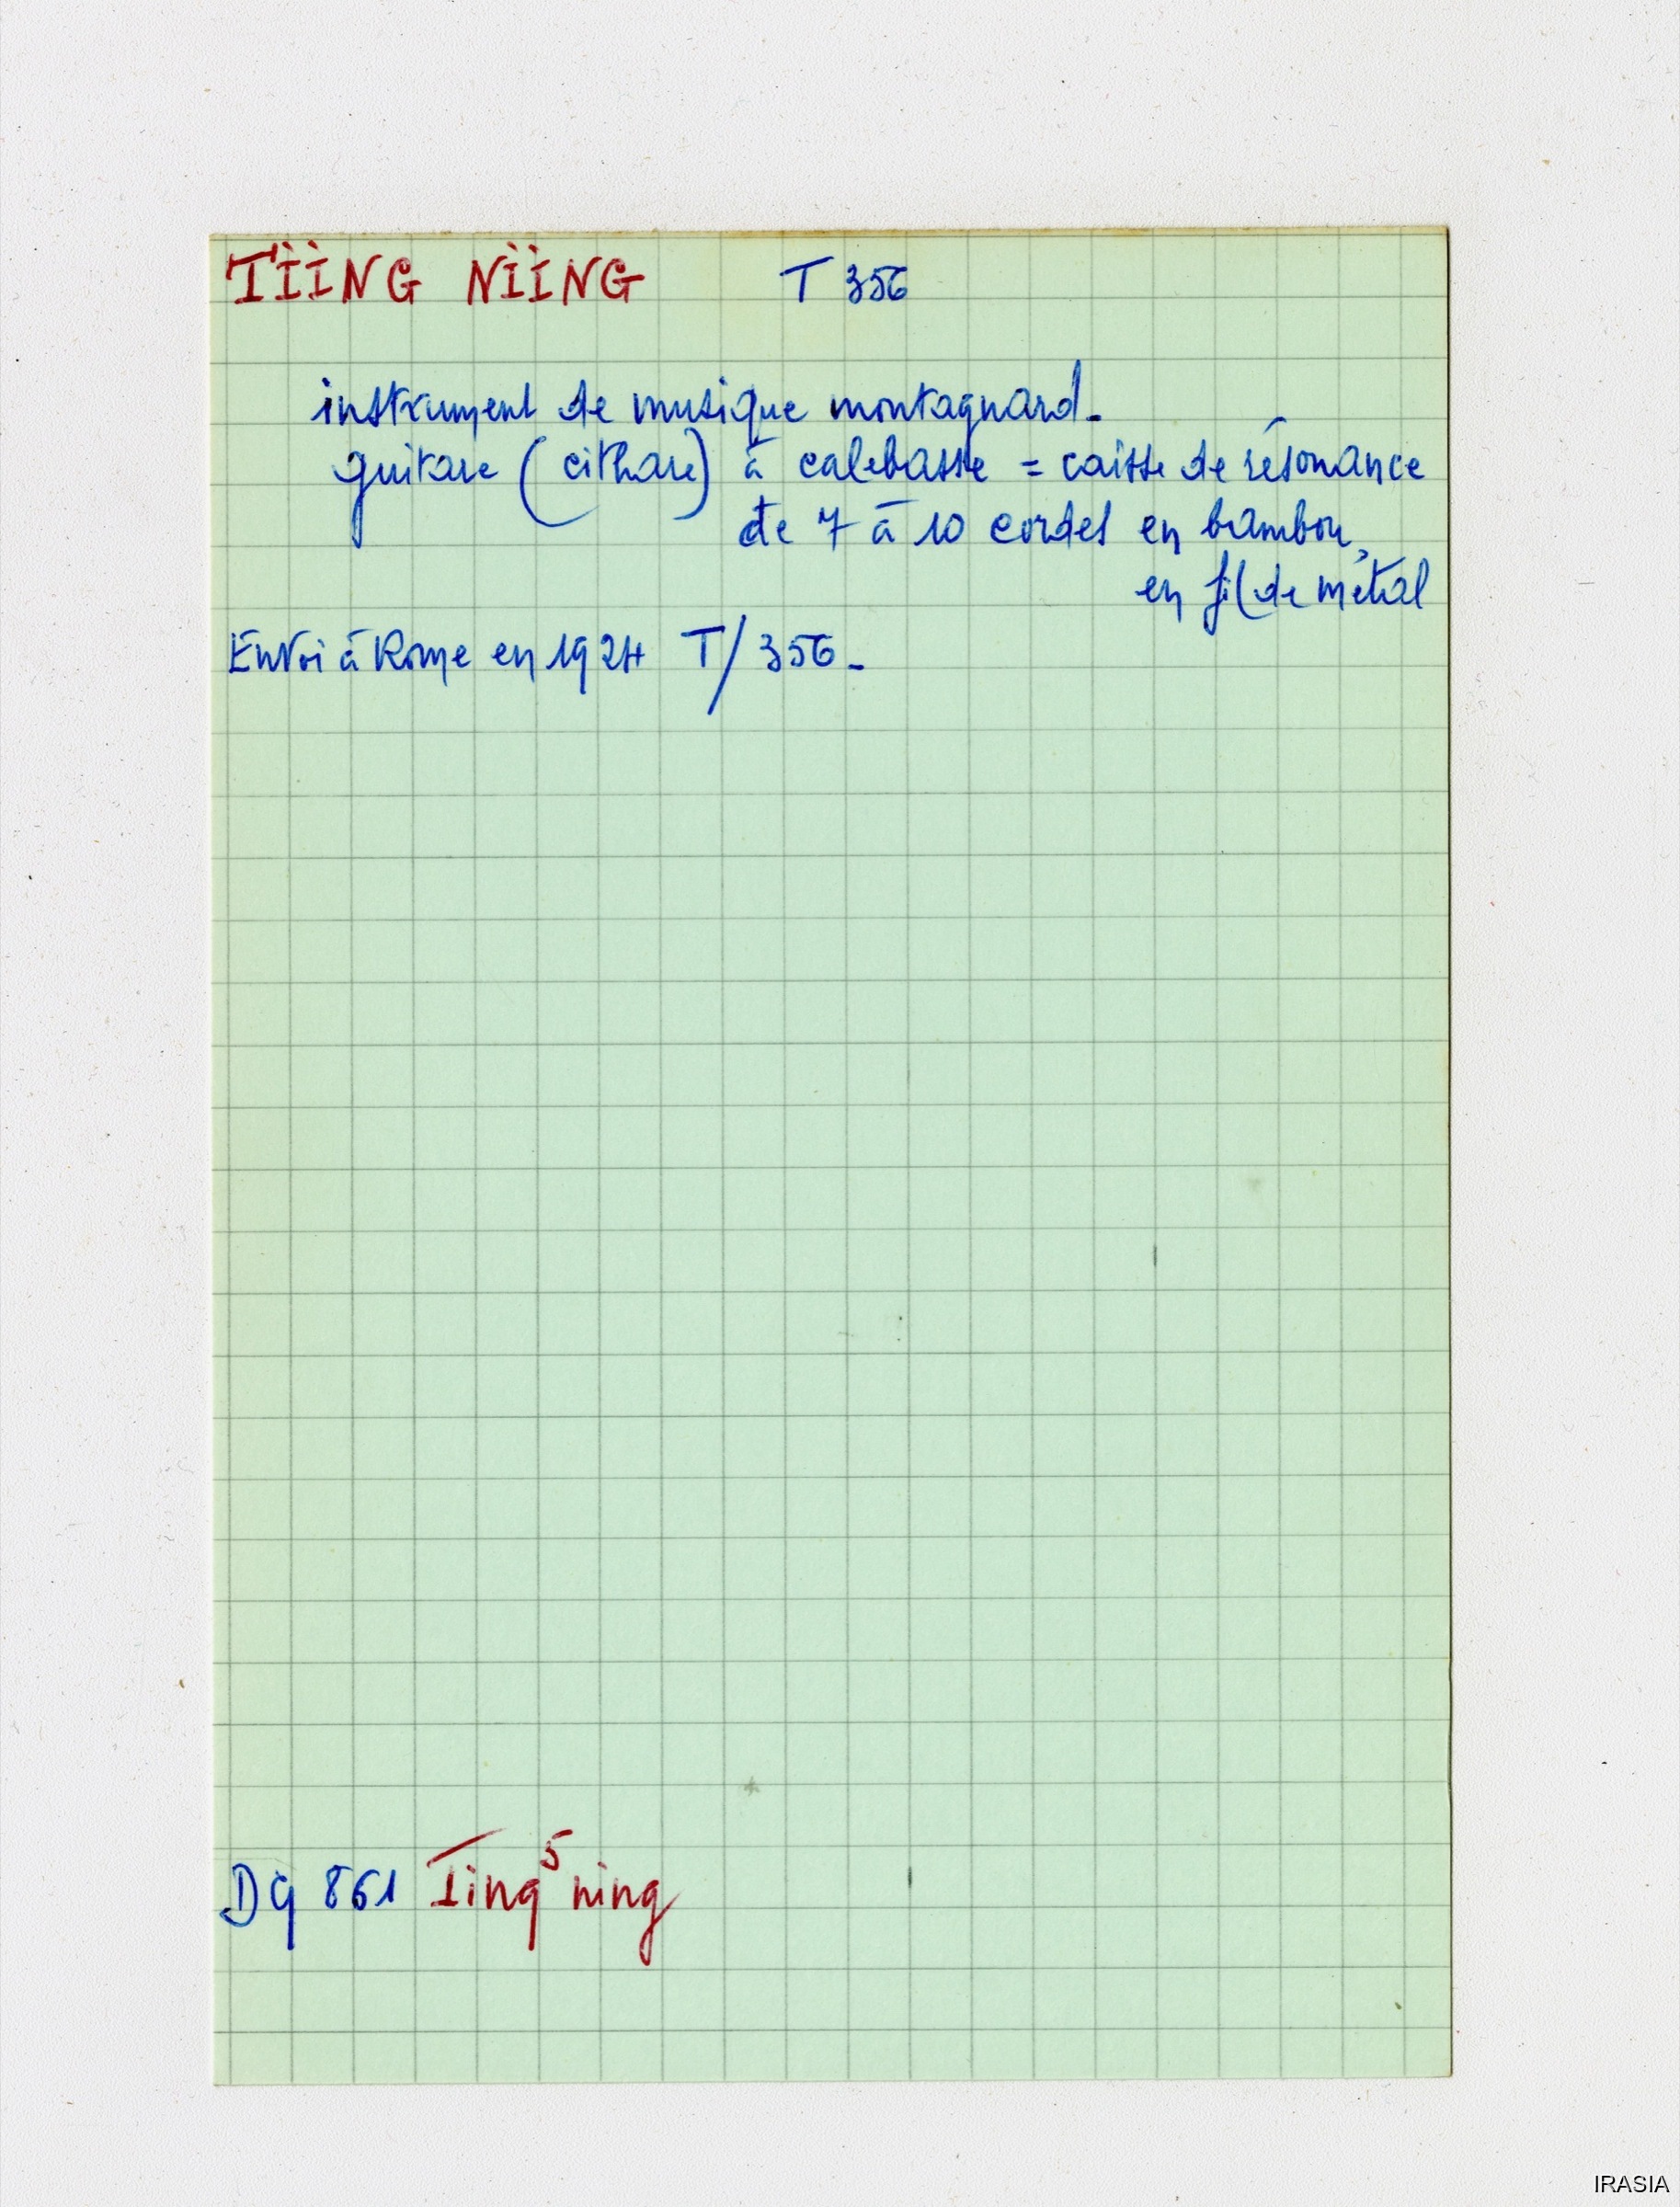 TÏÏNG NÏÏNG T 356
instrument de musique montagnard_
guitare (cithare) à calebasse = caisse de résonance
de 7 à 10 cordes en bambou,
en fil de métal
Envoi à Rome en 1924 T/356_
DG 861 Ting⁵ ning
IRASIA